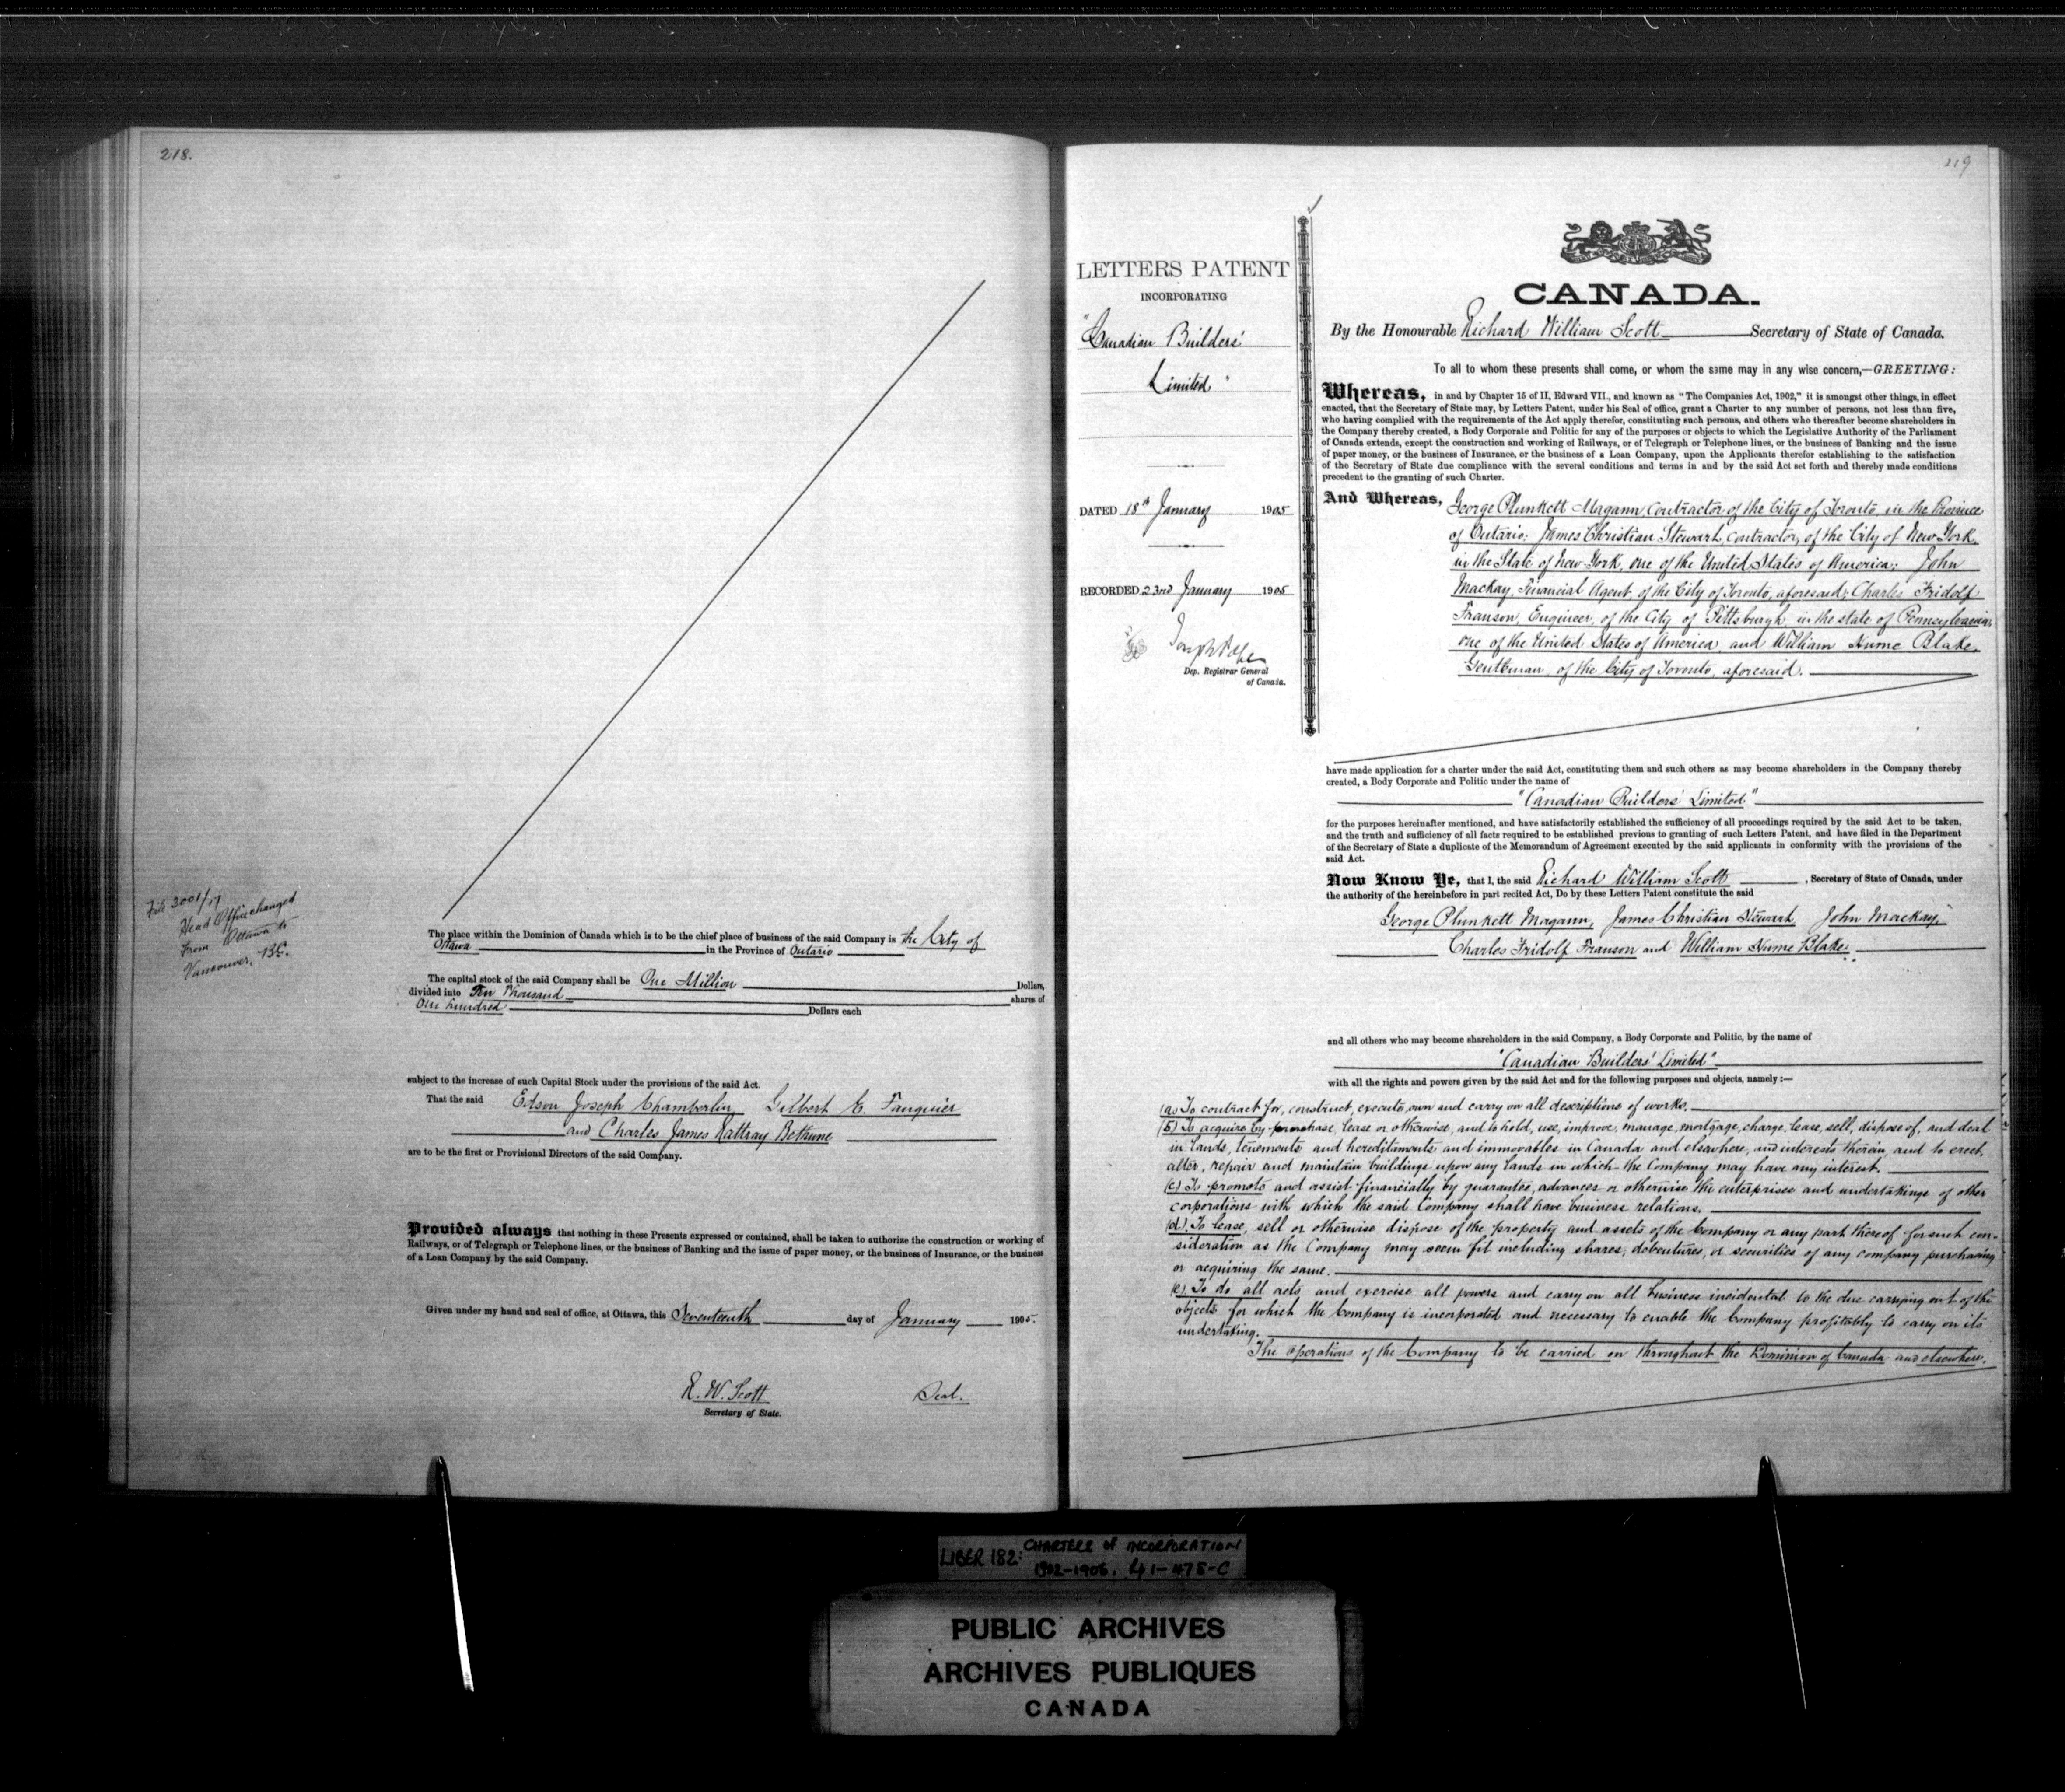 218.
File 3001/17
Head Office changed
from Ottawa to
Vancouver, B.C.
The place within the Dominion of Canada which is to be the chief place of business of the said Company is the City of
Ottawa in the Province of Ontario
The capital stock of the said Company shall be One Million Dollars,
divided into Ten Thousand shares of
One hundred Dollars each
subject to the increase of such Capital Stock under the provisions of the said Act.
That the said Edson Joseph Chamberlin, Gilbert E. Fauquier
and Charles James Rattray Bethune
are to be the first or Provisional Directors of the said Company.
Provided always that nothing in these Presents expressed or contained, shall be taken to authorize the construction or working of
Railways, or of Telegraph or Telephone lines, or the business of Banking and the issue of paper money, or the business of Insurance, or the business
of a Loan Company by the said Company.
Given under my hand and seal of office, at Ottawa, this Seventeenth day of January 1905.
R. W. Scott Seal.
Secretary of State.
219
LETTERS PATENT
INCORPORATING
"Canadian Builders'
Limited"
DATED 18th January 1905
RECORDED 23rd January 1905
Joseph Pope
Dep. Registrar General
of Canada.
CANADA.
By the Honourable Richard William Scott Secretary of State of Canada.
To all to whom these presents shall come, or whom the same may in any wise concern,—GREETING:
Whereas, in and by Chapter 15 of II, Edward VII., and known as "The Companies Act, 1902," it is amongst other things, in effect
enacted, that the Secretary of State may, by Letters Patent, under his Seal of office, grant a Charter to any number of persons, not less than five,
who having complied with the requirements of the Act apply therefor, constituting such persons, and others who thereafter become shareholders in
the Company thereby created, a Body Corporate and Politic for any of the purposes or objects to which the Legislative Authority of the Parliament
of Canada extends, except the construction and working of Railways, or of Telegraph or Telephone lines, or the business of Banking and the issue
of paper money, or the business of Insurance, or the business of a Loan Company, upon the Applicants therefor establishing to the satisfaction
of the Secretary of State due compliance with the several conditions and terms in and by the said Act set forth and thereby made conditions
precedent to the granting of such Charter.
And Whereas, George Plunkett Magann, Contractor of the City of Toronto, in the Province
of Ontario; James Christian Stewart, Contractor, of the City of New York
in the State of New York, one of the United States of America; John
Mackay, Financial Agent, of the City of Toronto, aforesaid; Charles Fridolf
Franson, Engineer, of the City of Pittsburgh, in the state of Pennsylvania,
one of the United States of America, and William Hume Blake,
Gentleman, of the City of Toronto, aforesaid.
have made application for a charter under the said Act, constituting them and such others as may become shareholders in the Company thereby
created, a Body Corporate and Politic under the name of
"Canadian Builders' Limited"
for the purposes hereinafter mentioned, and have satisfactorily established the sufficiency of all proceedings required by the said Act to be taken,
and the truth and sufficiency of all facts required to be established previous to granting of such Letters Patent, and have filed in the Department
of the Secretary of State a duplicate of the Memorandum of Agreement executed by the said applicants in conformity with the provisions of the
said Act.
Now Know Ye, that I, the said Richard William Scott, Secretary of State of Canada, under
the authority of the hereinbefore in part recited Act, Do by these Letters Patent constitute the said
George Plunkett Magann, James Christian Stewart, John Mackay,
Charles Fridolf Franson and William Hume Blake,
and all others who may become shareholders in the said Company, a Body Corporate and Politic, by the name of
"Canadian Builders' Limited"
with all the rights and powers given by the said Act and for the following purposes and objects, namely:—
(a) To contract for, construct, execute, own and carry on all descriptions of works.
(b) To acquire by purchase, lease or otherwise, and to hold, use, improve, manage, mortgage, charge, lease, sell, dispose of, and deal
in lands, tenements and hereditaments and immovables in Canada and elsewhere, and interests therein, and to erect,
alter, repair and maintain buildings upon any lands in which the Company may have any interest.
(c) To promote and assist financially by guarantee, advances or otherwise the enterprises and undertakings of other
corporations with which the said Company shall have business relations.
(d) To lease, sell or otherwise dispose of the property and assets of the Company or any part thereof for such con-
sideration as the Company may seem fit including shares, debentures, or securities of any company purchasing
or acquiring the same.
(e) To do all acts and exercise all powers and carry on all business incidental to the due carrying out of the
objects for which the Company is incorporated and necessary to enable the Company profitably to carry on its
undertaking.
The operations of the Company to be carried on throughout the Dominion of Canada and elsewhere.
LIBER 182: CHARTERS OF INCORPORATION
1902-1906. 41-478-C
PUBLIC ARCHIVES
ARCHIVES PUBLIQUES
CANADA